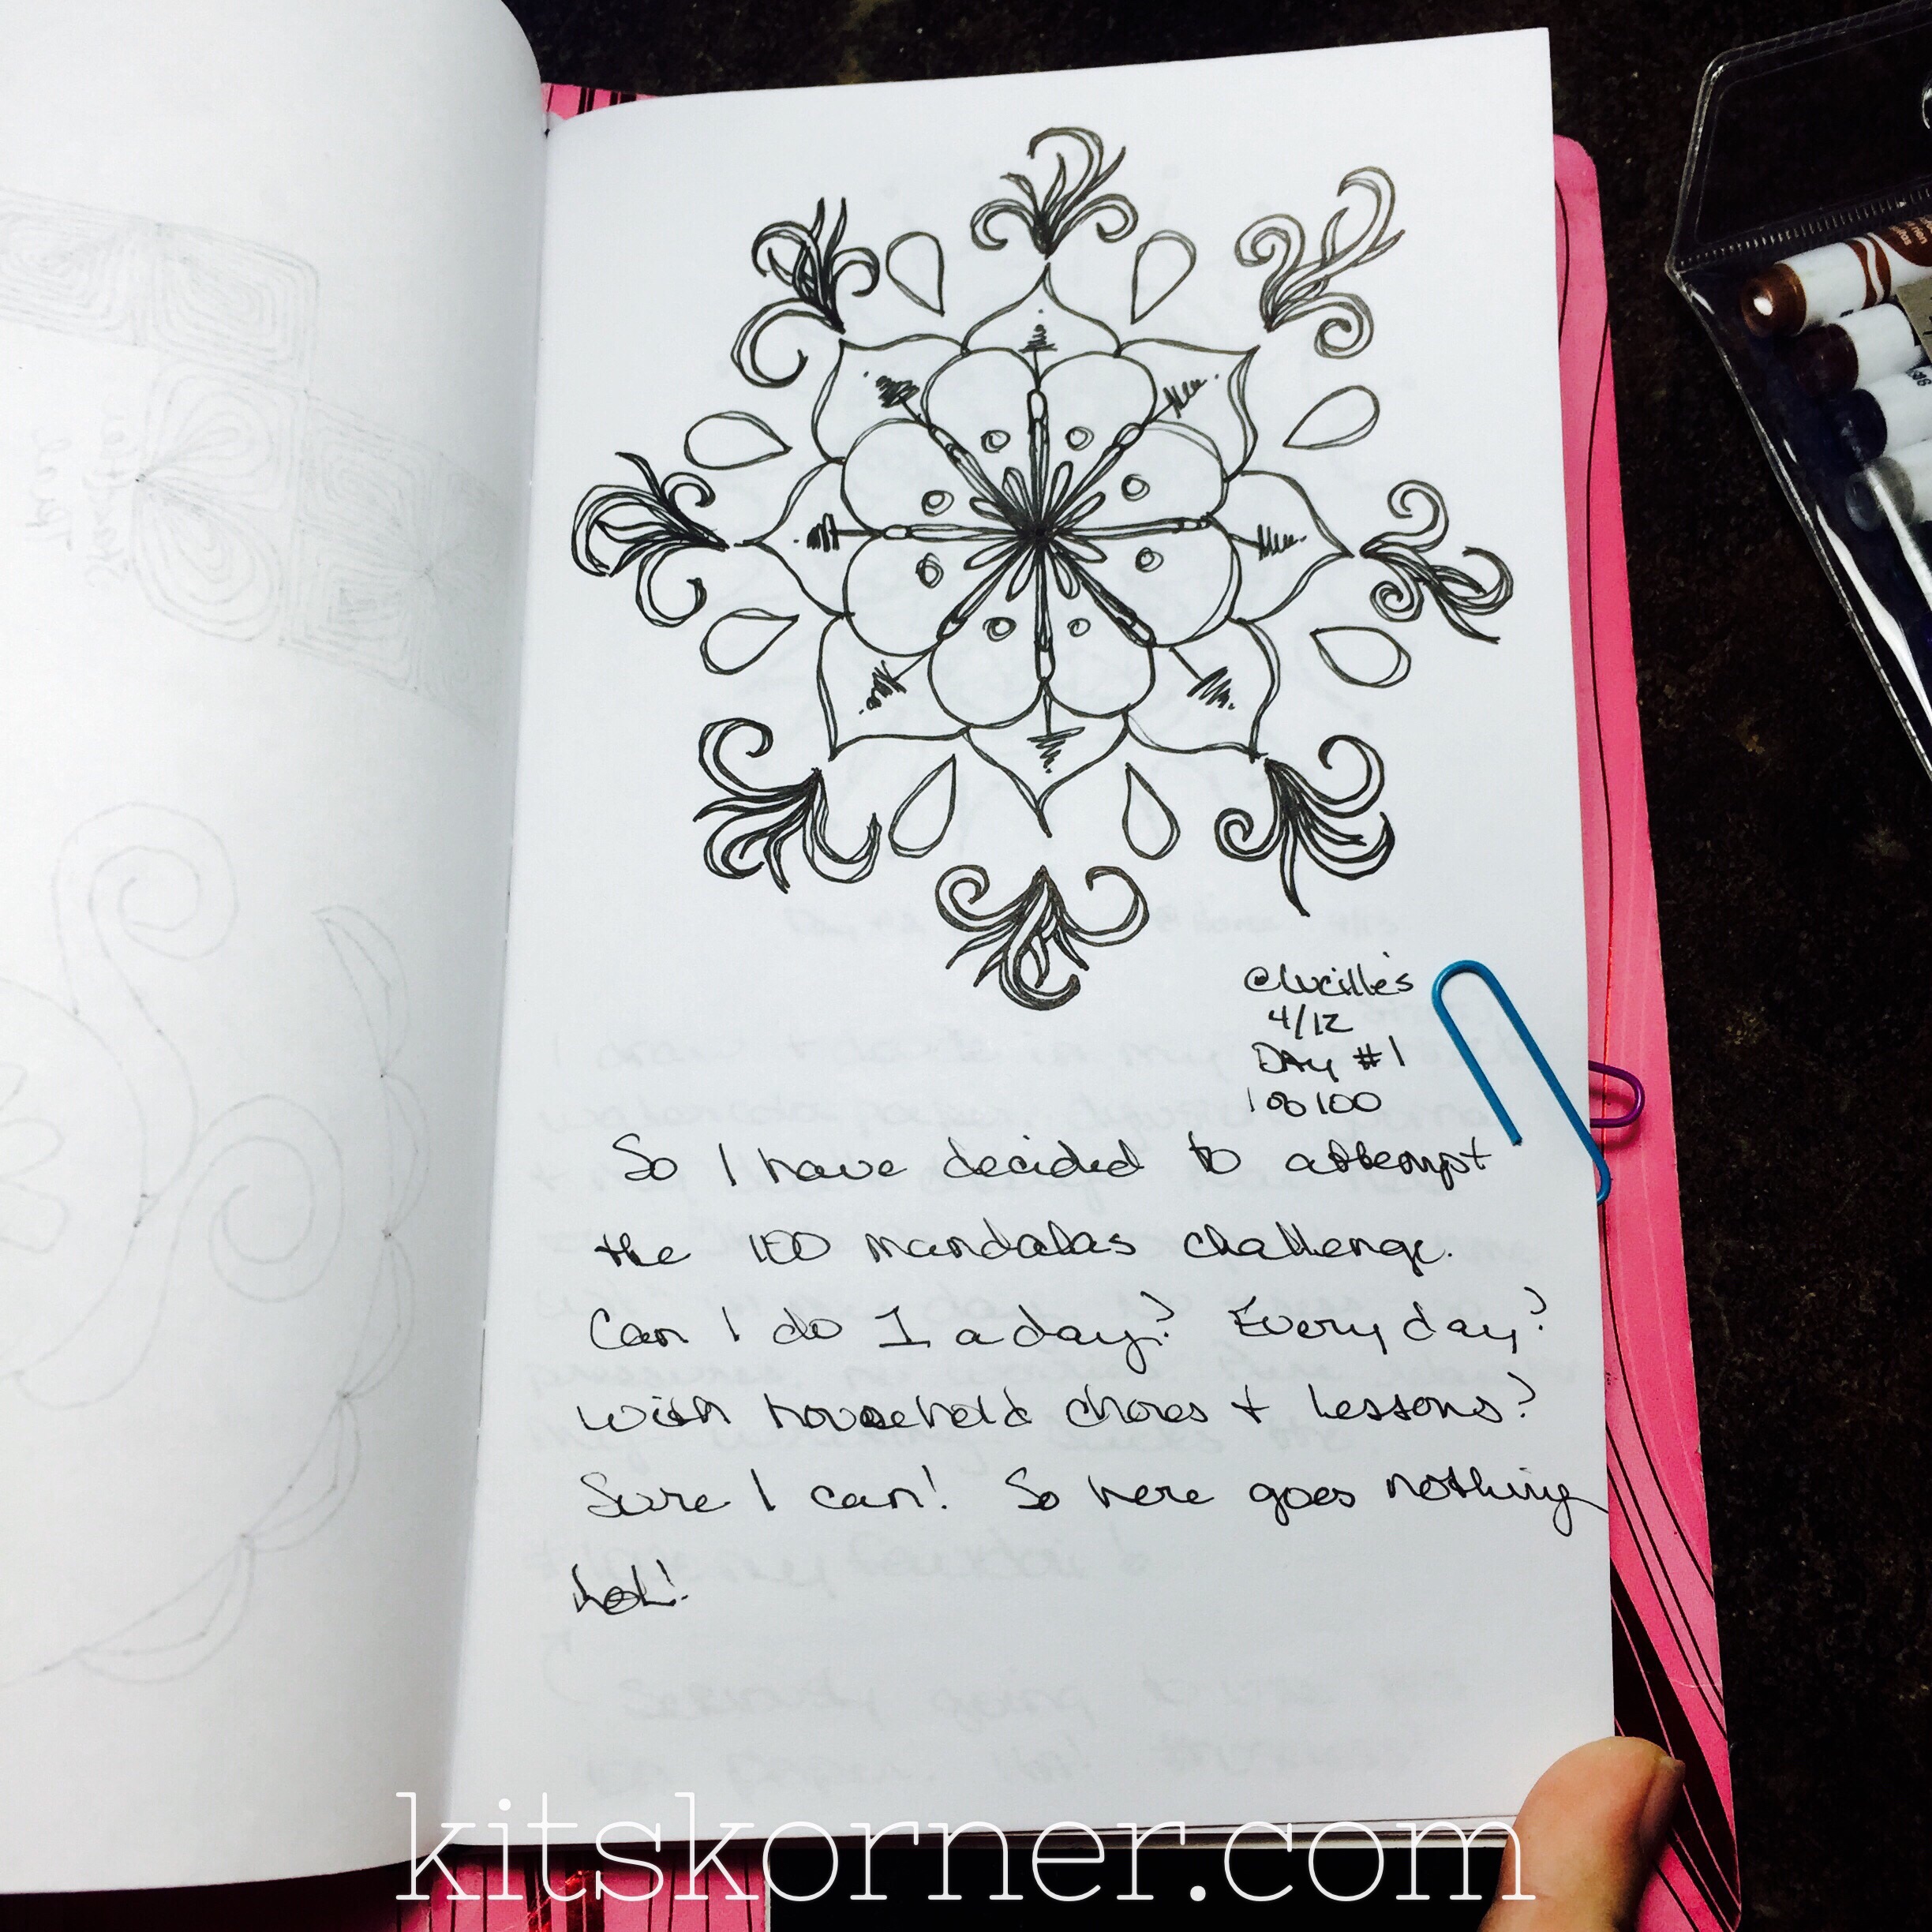 @Lucille's
4/12
DAy #1
1 of 100
So I have decided to attempt
the 100 mandalas challenge.
Can I do 1 a day? Every day?
with household chores + lessons?
Sure I can! So here goes nothing
LoL!
kitskorner.com